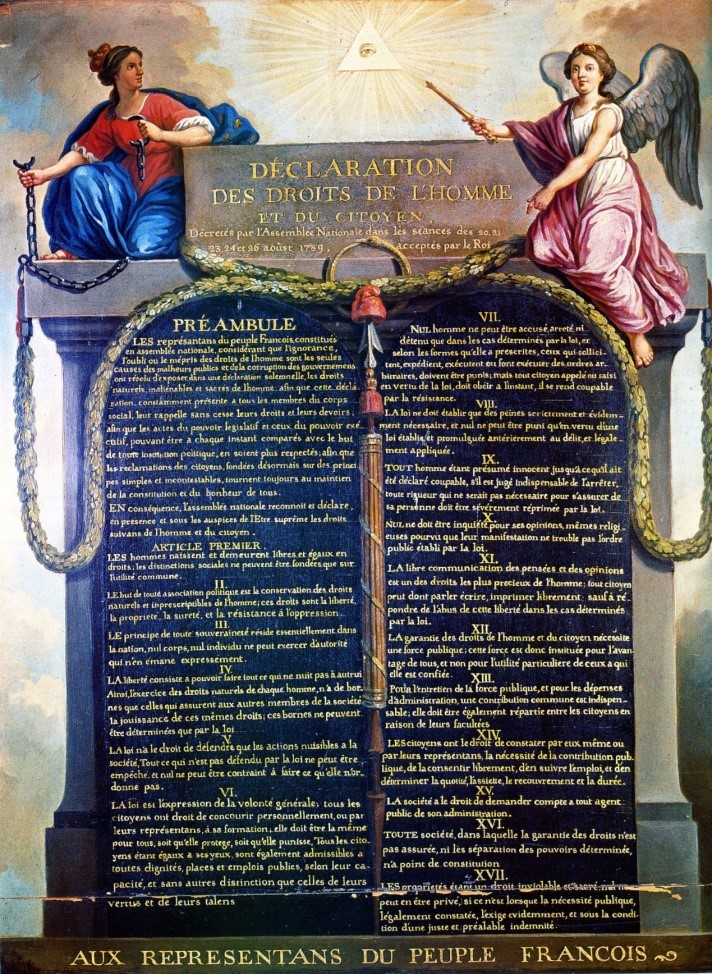 DÉCLARATION
DES DROITS DE L'HOMME
ET DU CITOYEN,
Décretés par l'Assemblée Nationale dans les séances des 20, 21
23, 24 et 26 août 1789, acceptés par le Roi
PRÉAMBULE
LES représentans du peuple Francois, constitués
en assemblée nationale, considérant que l'ignorance,
l'oubli ou le mépris des droits de l'homme sont les seules
causes des malheurs publics et de la corruption des gouvernemens
ont résolu d'exposer dans une déclaration solemnelle, les droits
naturels, inaliénables et sacrés de l'homme; afin que cette décla
ration, constamment présente a tous les membres du corps
social, leur rappelle sans cesse leurs droits et leurs devoirs;
afin que les actes du pouvoir legislatif et ceux du pouvoir exé
cutif, pouvant être a chaque instant comparés avec le but
de toute institution politique, en soient plus respectés; afin que
les reclamations des citoyens, fondées désormais sur des princi
pes simples et incontestables, tournent toujours au maintien
de la constitution et du bonheur de tous.
EN conséquence, l'assemblée nationale reconnoit et déclare,
en presence et sous les auspices de l'Etre suprême les droits
suivans de l'homme et du citoyen.
ARTICLE PREMIER.
LES hommes naissent et demeurent libres et égaux en
droits; les distinctions sociales ne peuvent être fondées que sur
l'utilité commune.
II.
LE but de toute association politique est la conservation des droits
naturels et inprescriptibles de l'homme; ces droits sont la liberté,
la propriete, la sureté, et la résistance à l'oppression.
III.
LE principe de toute souveraineté réside essentiellement dans
la nation, nul corps, nul individu ne peut exercer d'autorité
qui n'en émane expressément.
IV.
LA liberté consiste a pouvoir faire tout ce qui ne nuit pas à autrui
Ainsi, l'exercice des droits naturels de chaque homme, n'a de bor-
nes que celles qui assurent aux autres membres de la société
la jouissance de ces mêmes droits; ces bornes ne peuvent
être déterminées que par la loi
V.
LA loi n'a le droit de défendre que les actions nuisibles a la
société. Tout ce qui n'est pas défendu par la loi ne peut être
empêché, et nul ne peut être contraint à faire ce qu'elle n'or-
donne pas.
VI.
LA loi est l'expression de la volonté générale; tous les
citoyens ont droit de concourir personnellement, ou par
leurs représentans, à sa formation; elle doit être la même
pour tous, soit qu'elle protege, soit qu'elle punisse. Tous les cito
yens étant égaux a ses yeux, sont également admissibles a
toutes dignités, places et emplois publics, selon leur ca-
pacité, et sans autres distinction que celles de leurs
vertus et de leurs talens
VII.
NUL homme ne peut être accusé, arreté ni
détenu que dans les cas déterminés par la loi, et
selon les formes qu'elle a prescrites, ceux qui sollici-
tent, expédient, exécutent ou font exécuter des ordres ar-
bitraires, doivent être punis; mais tout citoyen appelé ou saisi
en vertu de la loi, doit obéir a l'instant, il se rend coupable
par la résistance.
VIII.
LA loi ne doit établir que des peines strictement et évidem-
ment nécessaire, et nul ne peut être puni qu'en vertu d'une
loi établie et promulguée antérierement au délit, et légale-
ment appliquée.
IX.
TOUT homme étant présumé innocent jusqu'a ce qu'il ait
été déclaré coupable, s'il est jugé indispensable de l'arrêter,
toute rigueur qui ne serait pas nécessaire pour s'assurer de
sa personne doit être sévèrement réprimée par la loi.
X.
NUL ne doit être inquiété pour ses opinions, mêmes religi
euses pourvu que leur manifestation ne trouble pas l'ordre
public établi par la loi.
XI.
LA libre communication des pensées et des opinions
est un des droits les plus precieux de l'homme; tout citoyen
peut dont parler écrire, imprimer librement; sauf à ré-
pondre de l'abus de cette liberté dans les cas déterminés
par la loi.
XII.
LA garantie des droits de l'homme et du citoyen nécessite
une force publique; cette force est donc instituée pour l'avan
tage de tous, et non pour l'utilité particuliere de ceux a qui
elle est confiée.
XIII.
Pour l'entretien de la force publique, et pour les dépenses
d'administration, une contribution commune est indispen-
sable; elle doit être également répartie entre les citoyens en
raison de leurs facultées
XIV.
LES citoyens ont le droit de constater par eux même ou
par leurs représentans, la nécessité de la contribution pub-
lique, de la consentir librement, d'en suivre l'emploi, et d'en
déterminer la quotité, l'assiette, le recouvrement et la durée.
XV.
LA société a le droit de demander compte a tout agent
public de son administration.
XVI.
TOUTE société, dans laquelle la garantie des droits n'est
pas assurée, ni les séparation des pouvoirs déterminée,
n'a point de constitution
XVII.
LES proprietés étant un droit inviolable et sacré, nul ne
peut en être privé, si ce n'est lorsque la nécessité publique,
légalement constatée, l'exige evidemment, et sous la condi-
tion d'une juste et préalable indemnité.
AUX REPRESENTANS DU PEUPLE FRANCOIS